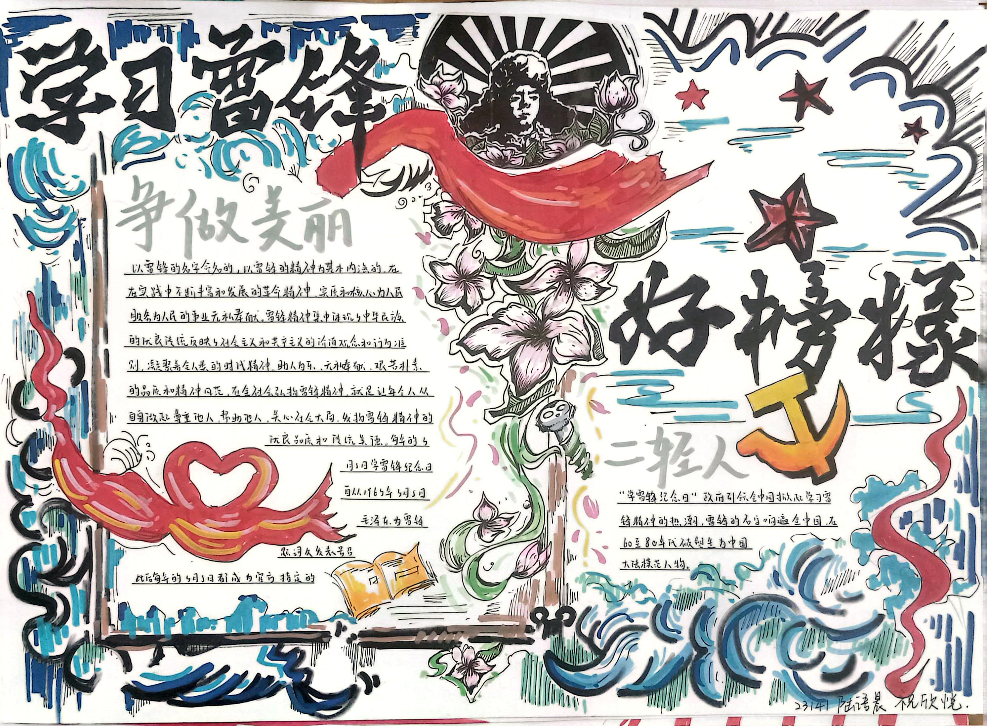 学习雷锋
好榜樣
争做美丽
以雷锋的名字命名的,以雷锋的精神为基本内涵的,在
在实践中不断丰富和发展的革命精神,实质和核心为人民
服务为人民的事业无私奉献,雷锋精神集中体现了中华民族
的优良传统反映了社会主义和共产主义的道德观念和行为准
则,凝聚着人类的时代精神,助人为乐、无私奉献、艰苦朴素
的品质和精神风范,在全社会弘扬雷锋精神,就是让每个人从
自身做起尊重他人,帮助他人,关心社会大局,发扬雷锋精神的
优良品质和传统美德。每年的3
月5日学雷锋纪念日
自从1963年3月5日
毛泽东为雷锋
题词公发表号召
此后每年的3月5日都成为官方指定的
二轻人
“学雷锋纪念日”政府引领全中国掀起学习雷
锋精神的热潮,雷锋的名字响遍全中国,在
60至80年代
为中国
人物。
23141 陆语晨 祝欣悦.